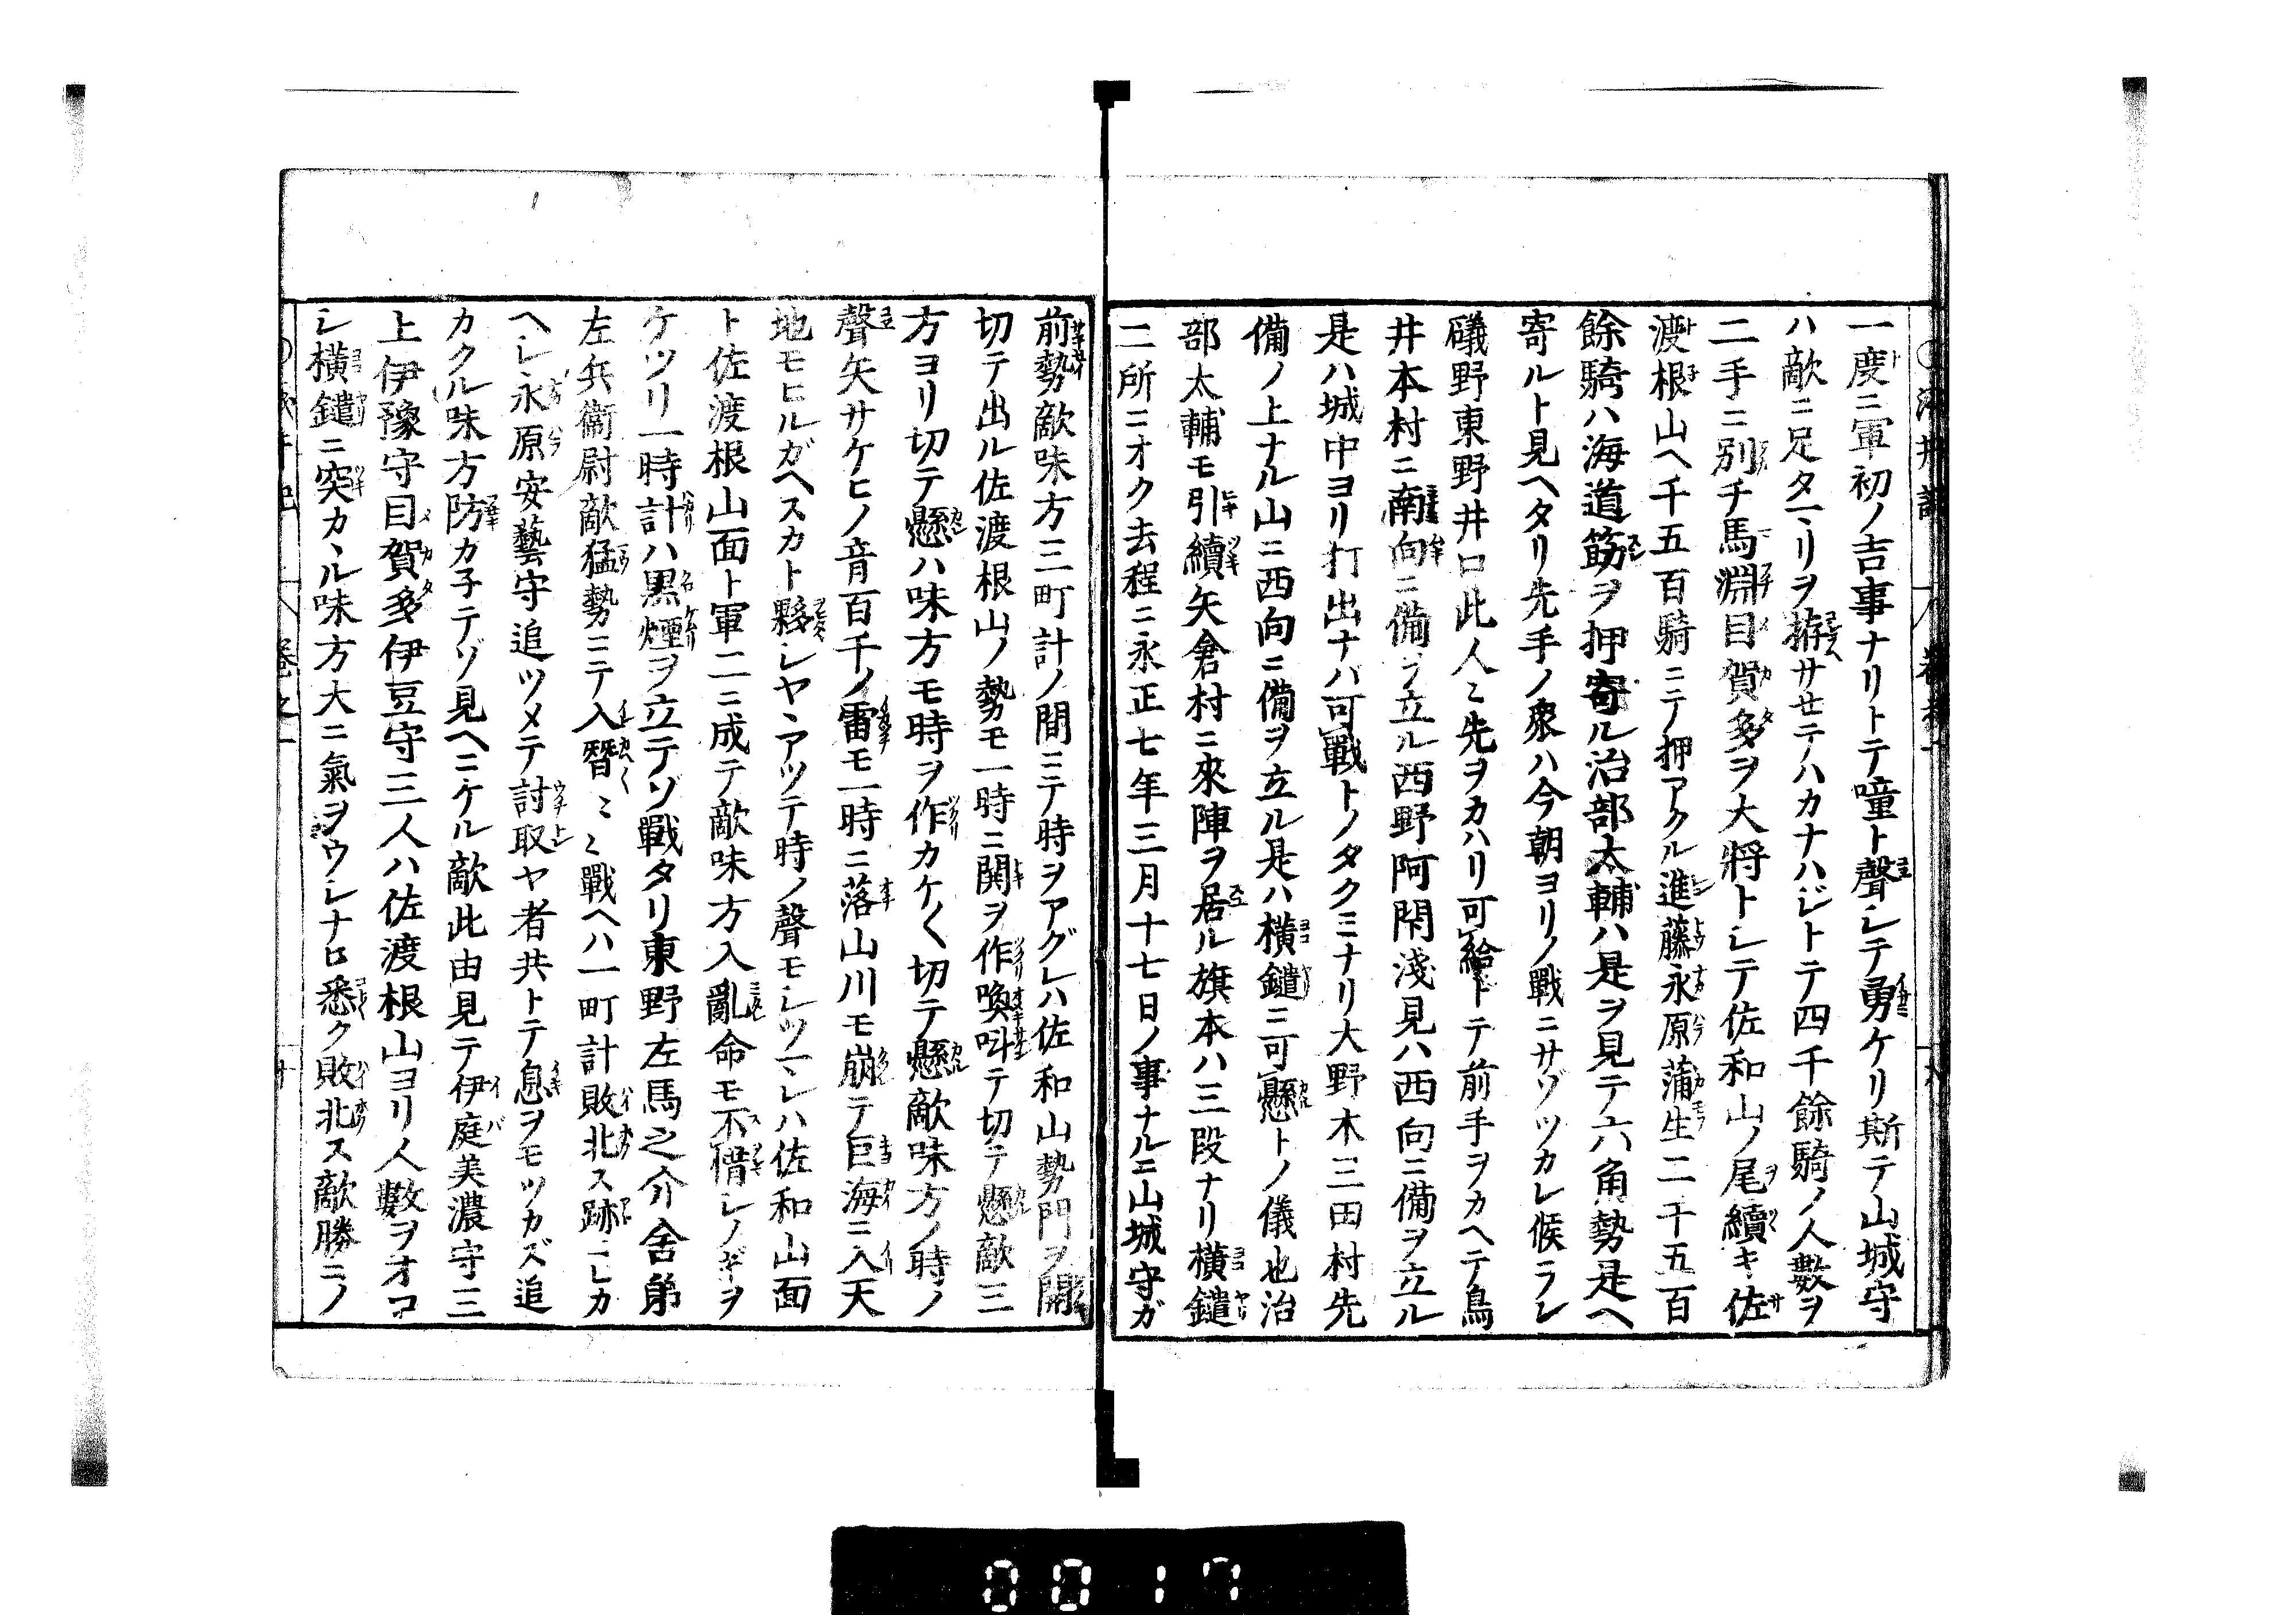 一度ニ軍初ノ吉事ナリトテ噇ト聲シテ勇ケリ斯テ山城守
ハ敵ニ足タマリヲ拵サセテハカナハジトテ四千餘騎ノ人數ヲ
二手ニ別チ馬淵目賀多ヲ大將トシテ佐和山ノ尾續キ佐
渡根山ヘ千五百騎ニテ押アクル進藤永原蒲生二千五百
餘騎ハ海道筋ヲ押寄ル治部太輔ハ是ヲ見テ六角勢是ヘ
寄ルト見ヘタリ先手ノ衆ハ今朝ヨリノ戰ニサゾツカレ候ラン
礒野東野井口此人々先ヲカハリ可給トテ前手ヲカヘテ鳥
井本村ニ南向ニ備ヲ立ル西野阿閑淺見ハ西向ニ備ヲ立ル
是ハ城中ヨリ打出ナバ可戰トノタクミナリ大野木三田村先
備ノ上ナル山ニ西向ニ備ヲ立ル是ハ横鑓ニ可懸トノ儀也治
部太輔モ引續矢倉村ニ來陣ヲ居ル旗本ハ三段ナリ横鑓
二所ニオク去程ニ永正七年三月十七日ノ事ナルニ山城守ガ
前勢敵味方三町計ノ間ニテ時ヲアグレハ佐和山勢門ヲ開
切テ出ル佐渡根山ノ勢モ一時ニ関ヲ作喚叫テ切テ懸敵三
方ヨリ切テ懸ハ味方モ時ヲ作カケ〱切テ懸敵味方ノ時ノ
聲矢サケヒノ音百千ノ雷モ一時ニ落山川モ崩テ巨海ニ入天
地モヒルガヘスカト夥シヤヽアツテ時ノ聲モシツマレハ佐和山面
ト佐渡根山面ト軍二ニ成テ敵味方入亂命モ不惜シノギヲ
ケツリ一時計ハ黒煙ヲ立テゾ戰タリ東野左馬之介舍弟
左兵衞尉敵猛勢ニテ入替々々戰ヘハ一町計敗北ス跡ニシカ
ヘシ永原安藝守追ツメテ討取ヤ者共トテ息ヲモツカズ追
カクル味方防カ子テゾ見ヘニケル敵此由見テ伊庭美濃守三
上伊豫守目賀多伊豆守三人ハ佐渡根山ヨリ人數ヲオロ
シ横鑓ニ突カヽル味方大ニ氣ヲウシナロ悉ク敗北ス敵勝ニノ